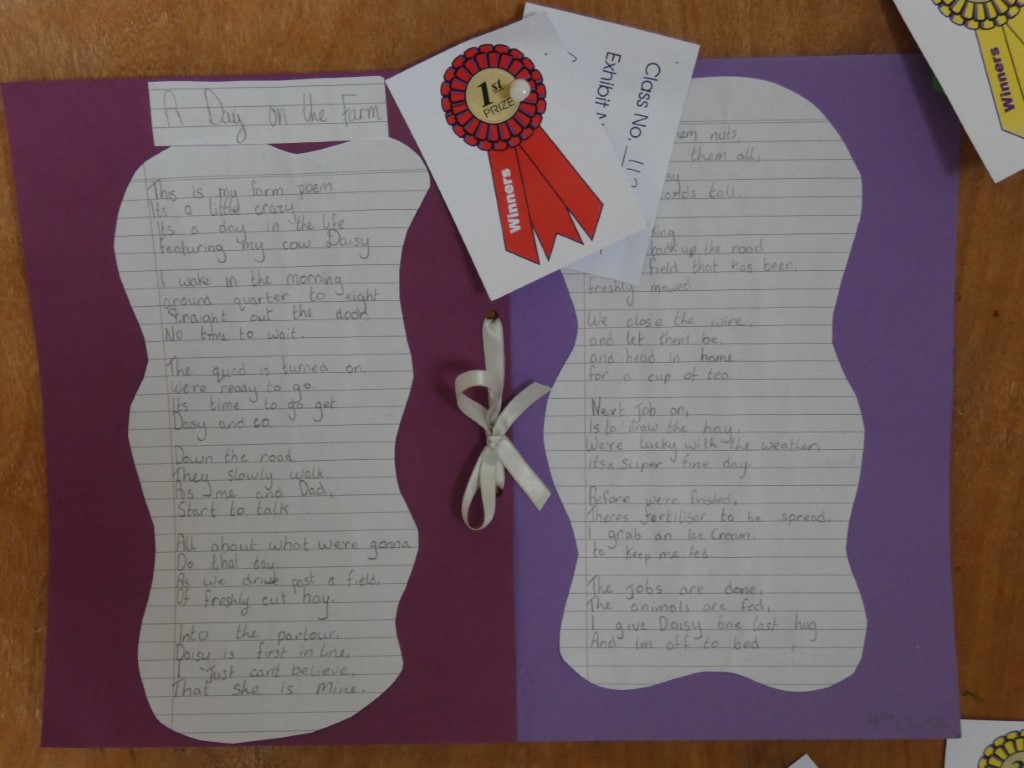 A Day on the Farm
This is my farm poem
Its a little crazy
Its a day in the life
Featuring my cow Daisy
I wake in the morning
around quarter to eight
Straight out the door,
No time to wait.
The quad is turned on
Were ready to go
Its time to go get
Daisy and co.
Down the road
They slowly walk
As me and Dad,
Start to talk
All about what were gonna
Do that day.
As we drive past a field,
Of freshly cut hay.
Into the parlour,
Daisy is first in line,
I Just cant believe,
That she is mine.
1st
PRIZE
Winners
Class No.
Exhibit
nuts,
them all,
tall.
back up the road
field that has been,
freshly mowed
We close the wire,
and let them be,
and head in home
for a cup of tea
Next job on,
Is to draw the hay,
We're lucky with the weather,
Its a super fine day
Before were finished,
Theres fertiliser to be spread.
I grab an Ice Cream,
to keep me fed
The jobs are done,
The animals are fed,
I give Daisy one last hug
And im off to bed
Winners